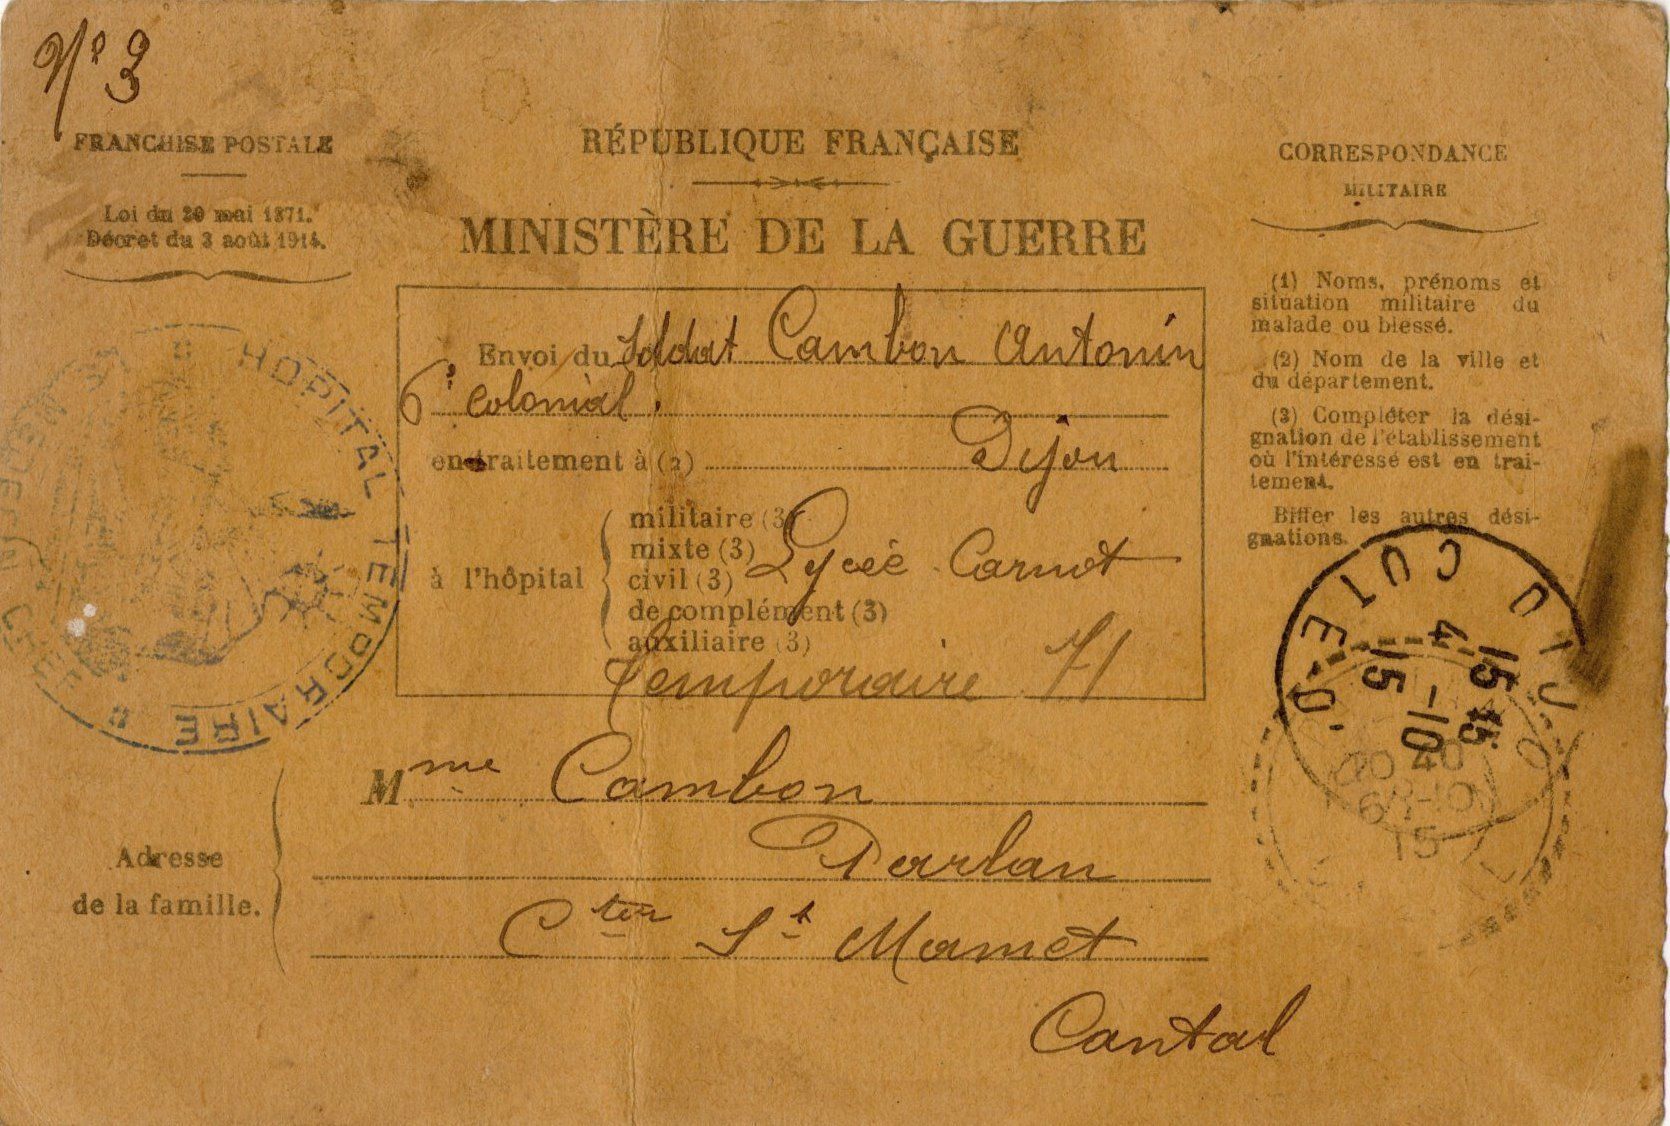 N° 3
FRANCHISE POSTALE
Loi du 20 mai 1871.
Décret du 3 août 1914.
RÉPUBLIQUE FRANÇAISE
MINISTÈRE DE LA GUERRE
CORRESPONDANCE
MILITAIRE
(1) Noms, prénoms et
situation militaire du
malade ou blessé.
(2) Nom de la ville et
du département.
(3) Compléter la dési-
gnation de l'établissement
où l'intéressé est en trai-
tement.
Biffer les autres dési-
gnations.
Envoi du Soldat Cambon Antonin
6e Colonial.
en traitement à (2) Dijon
à l'hôpital
militaire (3)
mixte (3)
civil (3)
de complément (3)
auxiliaire (3)
Lycée Carnot
Temporaire 71
HOPITAL TEMPORAIRE
MEDECIN CHEF
DIJON COTE-D'OR
15 45
4-10
15
6-10
15
Adresse
de la famille.
Mme Cambon
Parlan
Cton St Mamet
Cantal